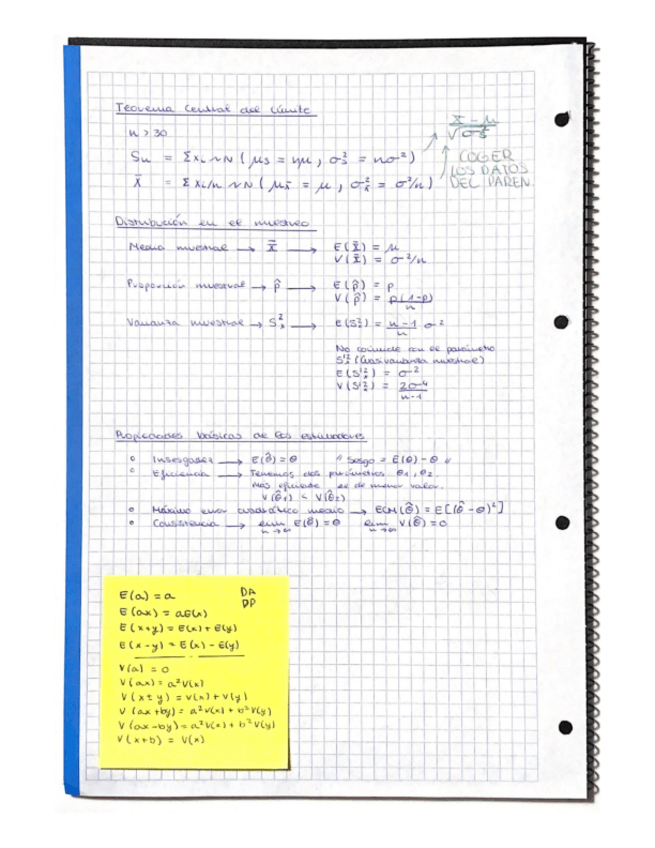 Teorema Central del Límite
n > 30
Sn = Σxi ~ N ( μs = nμ , σs² = nσ² )
x̄ = Σxi/n ~ N ( μx̄ = μ , σx̄² = σ²/n )
x̄ - μ
COGER
LOS DATOS
DEL PAREN
Distribución en el muestreo
Media muestral → x̄ → E(x̄) = μ
V(x̄) = σ²/n
Proporción muestral → p̂ → E(p̂) = p
V(p̂) = p(1-p)/n
Varianza muestral → Sx² → E(Sx²) = n-1/n σ²
No coincide con el parámetro
S'x² (Cuasivarianza muestral)
E(S'x²) = σ²
V(S'x²) = 2σ⁴/n-1
Propiedades básicas de los estimadores
° Insesgadez → E(θ̂) = θ " Sesgo = E(θ) - θ "
° Eficiencia → Tenemos dos parámetros θ1, θ2.
Más eficiente es de menor valor.
V(θ̂1) < V(θ̂2)
° Máximo error cuadrático medio → ECM(θ̂) = E[(θ̂ - θ)²]
° Consistencia → lim n→∞ E(θ̂) = θ lim n→∞ V(θ̂) = 0
E(a) = a DA
DP
E(ax) = aE(x)
E(x+y) = E(x) + E(y)
E(x-y) = E(x) - E(y)
V(a) = 0
V(ax) = a²V(x)
V(x±y) = V(x) + V(y)
V(ax+by) = a²V(x) + b²V(y)
V(ax-by) = a²V(x) + b²V(y)
V(x+b) = V(x)